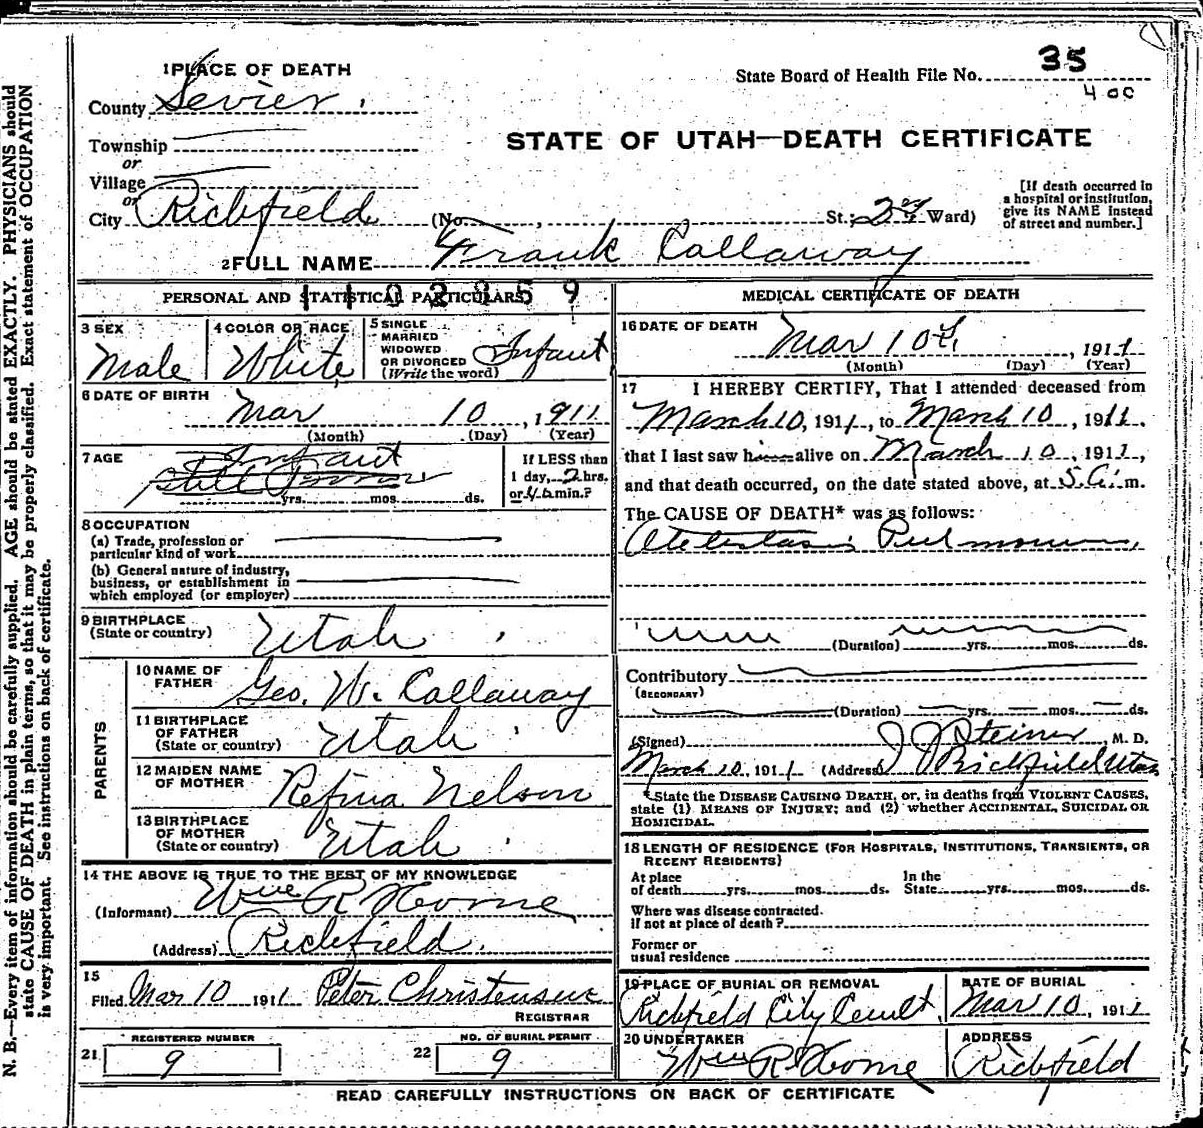 35
State Board of Health File No.
400
1 PLACE OF DEATH
County Sevier
STATE OF UTAH—DEATH CERTIFICATE
Township
or
Village
or
City Richfield (No. , St.; 2nd Ward)
[If death occurred in
a hospital or institution,
give its NAME instead
of street and number.]
2 FULL NAME Frank Callaway
PERSONAL AND STATISTICAL PARTICULARS
3 SEX
Male
4 COLOR OR RACE
White
5 SINGLE
MARRIED
WIDOWED
OR DIVORCED
(Write the word)
Infant
6 DATE OF BIRTH
Mar 10, 1911
(Month) (Day) (Year)
7 AGE
Infant
Still
yrs. mos. ds.
If LESS than
1 day, 2 hrs.
or min.?
8 OCCUPATION
(a) Trade, profession or
particular kind of work
(b) General nature of industry,
business, or establishment in
which employed (or employer)
9 BIRTHPLACE
(State or country)
Utah
PARENTS
10 NAME OF
FATHER
Geo. W. Callaway
11 BIRTHPLACE
OF FATHER
(State or country)
Utah
12 MAIDEN NAME
OF MOTHER
Refina Nelson
13 BIRTHPLACE
OF MOTHER
(State or country)
Utah
14 THE ABOVE IS TRUE TO THE BEST OF MY KNOWLEDGE
(Informant) Wm R Horne
(Address) Richfield.
15
Filed Mar 10 1911 Peter Christensen
REGISTRAR
REGISTERED NUMBER
21 9
NO. OF BURIAL PERMIT
22 9
MEDICAL CERTIFICATE OF DEATH
16 DATE OF DEATH
Mar 10th, 1911
(Month) (Day) (Year)
17 I HEREBY CERTIFY, That I attended deceased from
March 10, 1911, to March 10, 1911.
that I last saw h alive on March 10, 1911,
and that death occurred, on the date stated above, at 5 a. m.
The CAUSE OF DEATH* was as follows:
Atelectasis
(Duration) yrs. mos. ds.
Contributory
(SECONDARY)
(Duration) yrs. mos. ds.
(Signed) J J Steiner, M. D.
March 10, 1911 (Address) Richfield Utah
*State the DISEASE CAUSING DEATH, or, in deaths from VIOLENT CAUSES,
state (1) MEANS OF INJURY; and (2) whether ACCIDENTAL, SUICIDAL OR
HOMICIDAL.
18 LENGTH OF RESIDENCE (FOR HOSPITALS, INSTITUTIONS, TRANSIENTS, OR
RECENT RESIDENTS)
At place
of death yrs. mos. ds.
In the
State yrs. mos. ds.
Where was disease contracted.
if not at place of death?
Former or
usual residence
19 PLACE OF BURIAL OR REMOVAL
Richfield City
DATE OF BURIAL
Mar 10, 1911
20 UNDERTAKER
Wm R Horne
ADDRESS
Richfield
READ CAREFULLY INSTRUCTIONS ON BACK OF CERTIFICATE
N. B.—Every item of information should be carefully supplied. AGE should be stated EXACTLY. PHYSICIANS should
state CAUSE OF DEATH in plain terms, so that it may be properly classified. Exact statement of OCCUPATION
is very important. See instructions on back of certificate.